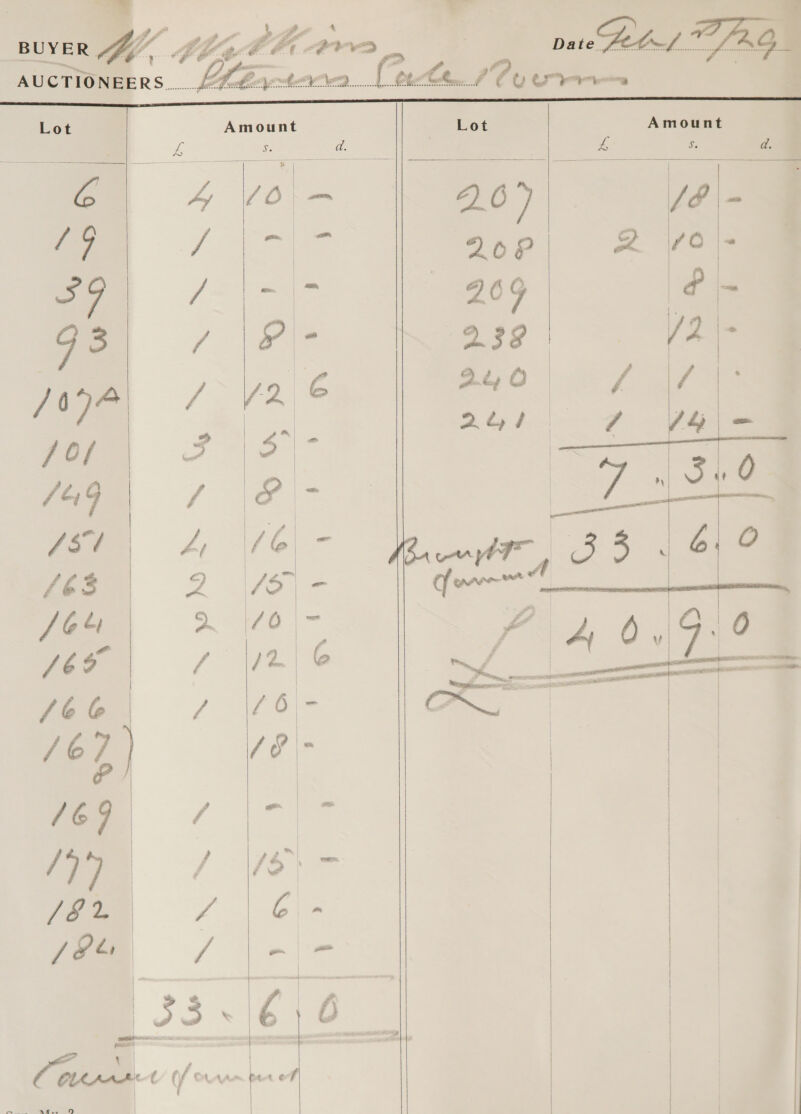 BUYER W. Watkins Date Feb 12th/29
AUCTIONEERS Stevens Sale Rooms
Lot Amount
£ s. d.
6 4 10 -
19 1 - -
39 1 - -
93 1 8 -
107A 1 12 6
101 3 5 -
149 1 8 -
151 4 16 -
163 2 15 -
164 2 10 -
165 1 12 6
166 1 10 -
167) 18 -
8
169 1 - -
177 1 15 -
182 1 6 -
184 1 - -
33 . 6 . 0
Carried forward
Lot Amount
£ s. d.
207 18 -
208 2 10 -
209 8 -
238 12 -
240 1 1 -
241 1 14 -
7 " 3 " 0
Brought 33 . 6 . 0
forward
£ 40 " 9 . 0